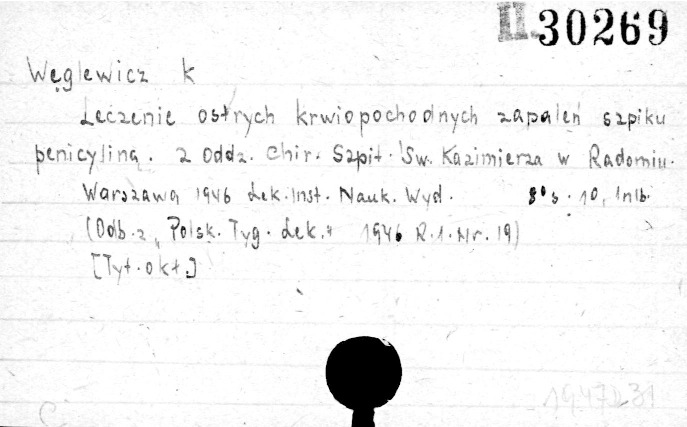 II.30269
Węglewicz K
Leczenie ostrych krwiopochodnych zapaleń szpiku
penicyliną. Z Oddz. Chir. Szpit. Św. Kazimierza w Radomiu.
Warszawa 1946 Lek. Inst. Nauk. Wyd. 8° s. 10, 1nlb.
(Odb. z „Polsk. Tyg. Lek." 1946 R.1. Nr. 19)
[Tyt. okł.]